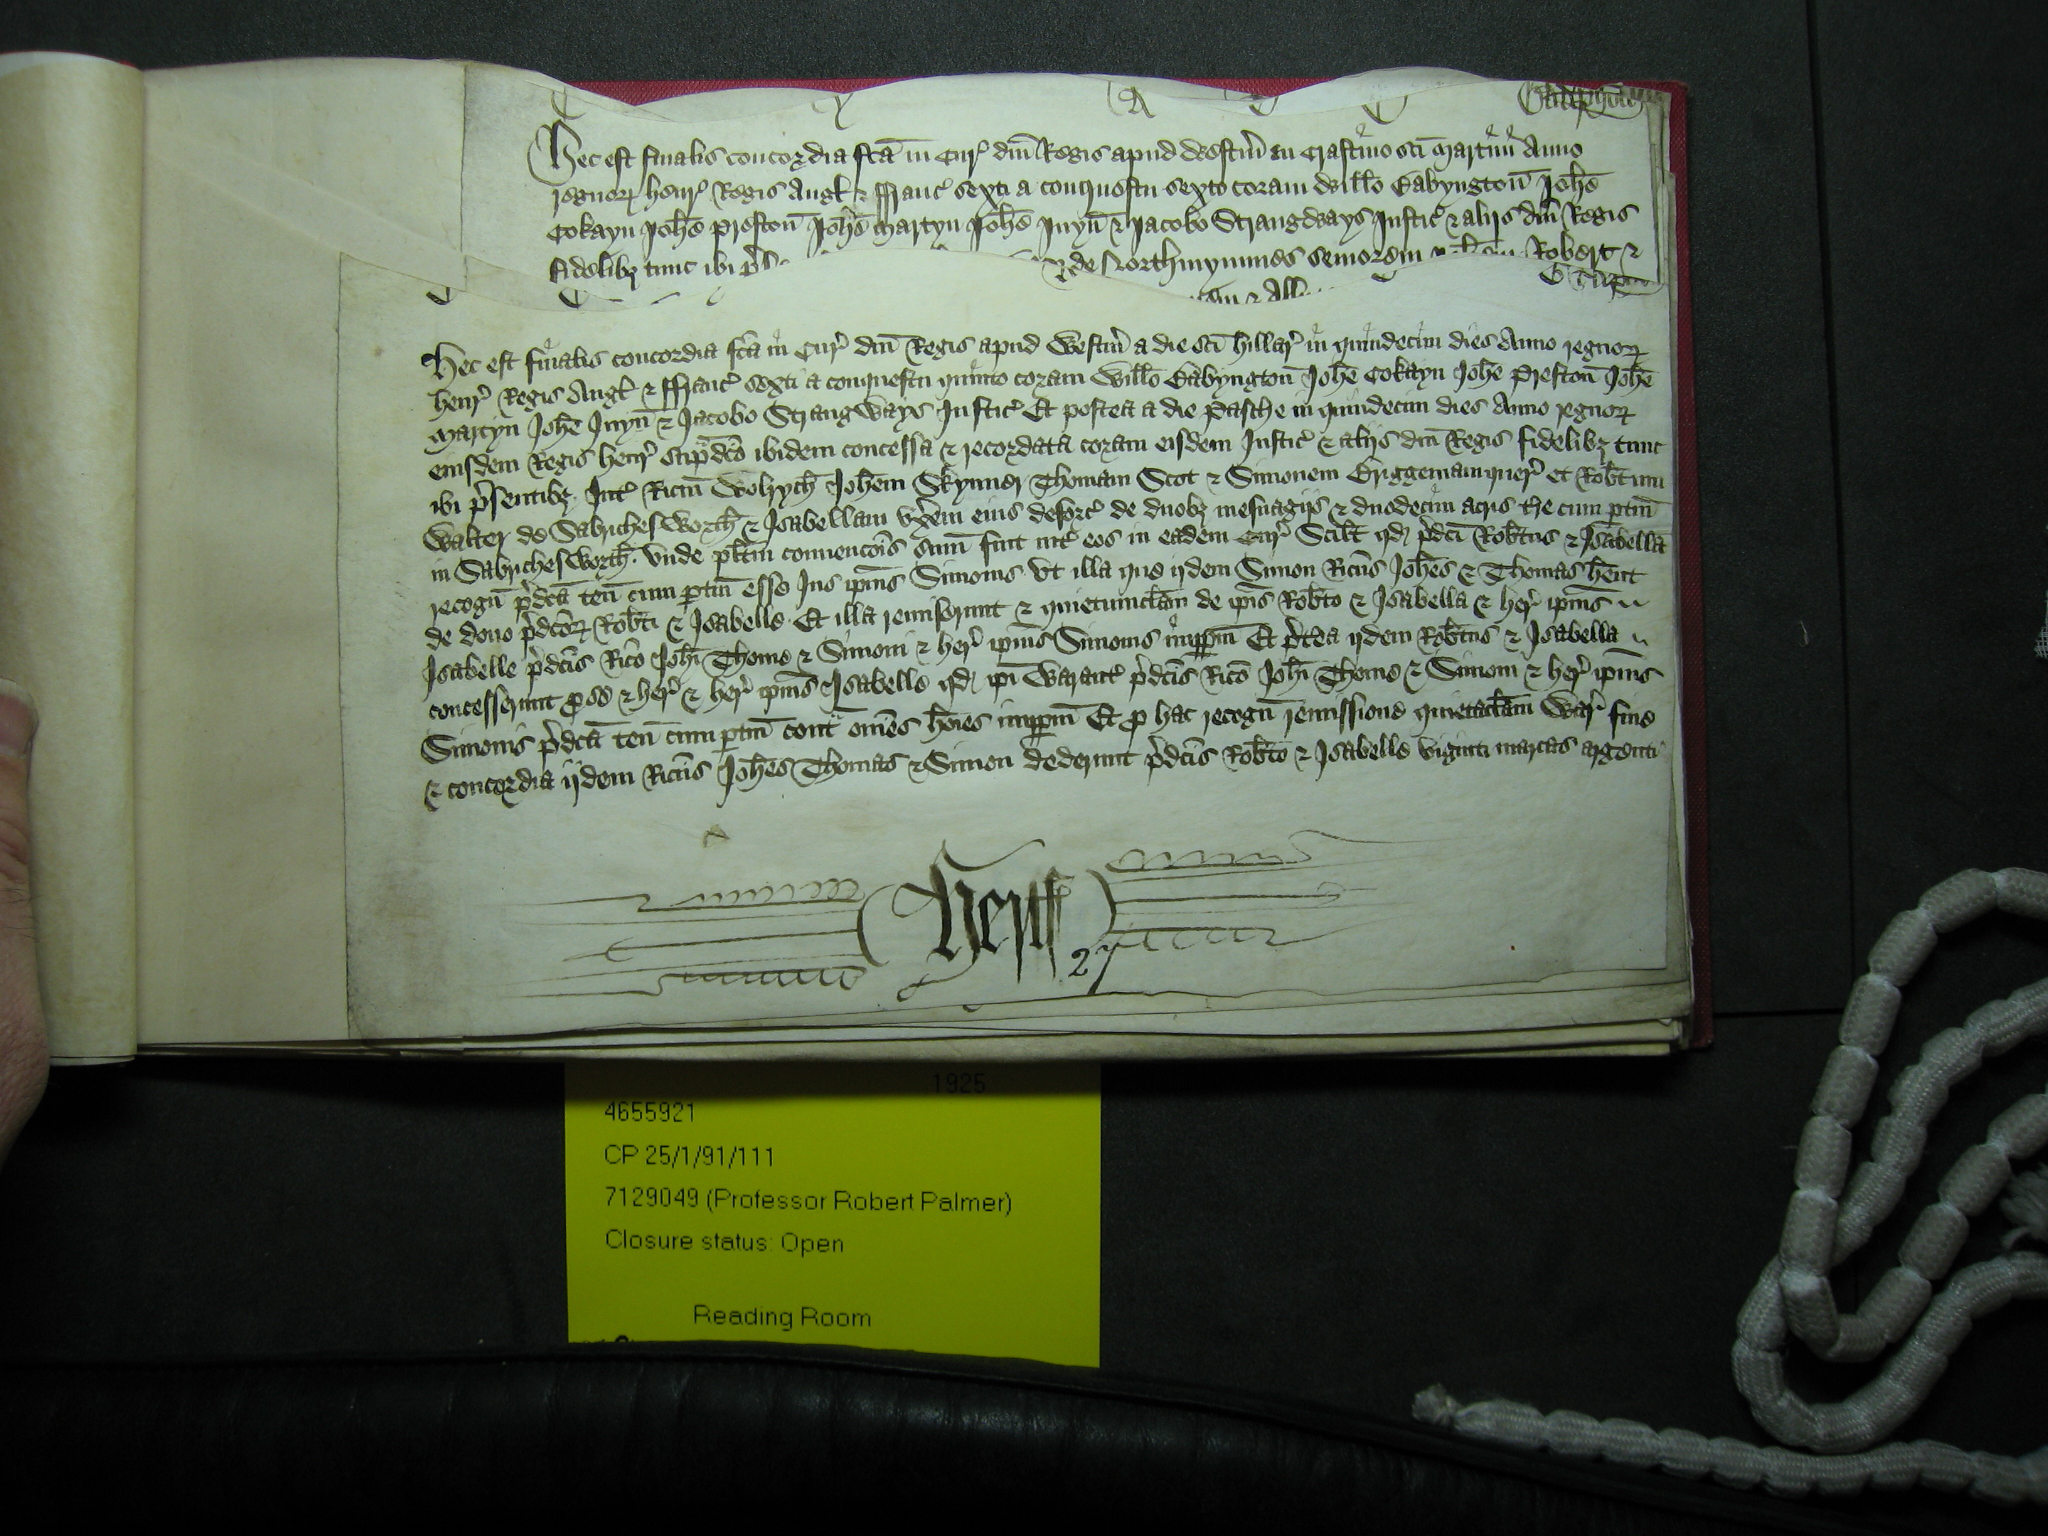 Hec est finalis concordia fcā in Cur' dnī Regis apud Westm̄ in Crastino scī Martini Anno
regnoꝝ Henr' Regis Angl' ⁊ Ffranc' sexti a conquestu sexto coram Will̄o Babyngton̄ Joh̄e
Cokayn Joh̄e Preston̄ Joh̄e Martyn Joh̄e Inyn̄ ⁊ Jacobo Strangways Justic' ⁊ alijs dnī Regis
fidelibꝫ tunc ibi
de Northmymmes seniorem Robert ⁊
Hec est finalis concordia fcā in Cur' dnī Regis apud Westm̄ a die scī Hillar' in quindecim dies Anno regnoꝝ
Henr' Regis Angl' ⁊ Ffranc' sexti a conquestu quinto coram Will̄o Babyngton̄ Joh̄e Cokayn Joh̄e Preston̄ Joh̄e
Martyn Joh̄e Inyn̄ ⁊ Jacobo Strangways Justic' Et postea a die Pasche in quindecim dies Anno regnoꝝ
eiusdem Regis Henr' sup̄dcō ibidem concessa ⁊ recordata coram eisdem Justic' ⁊ alijs dnī Regis fidelibꝫ tunc
ibi p̄sentibꝫ. Int' Ricm̄ Wolrych̄ Joh̄em Skynner Thomam Scot ⁊ Simonem Briggeman quer' et Rob̄tum
Walter de Sabrichesworth̄ ⁊ Isabellam vx̄em eius deforc' de duobꝫ mesuagijs ⁊ duodecim acris t̄re cum ptin̄
in Sabrichesworth̄. Vnde plt̄m conuencōis sum̄ fuit int' eos in eadem Cur' Scilt̄ qd̛ p̄dcī Rob̄tus ⁊ Isabella
recogn̄ p̄dcā ten̄ cum ptin̄ esse Jus ip̄ius Simonis. Vt illa que ijdem Simon Ricūs Joh̄es ⁊ Thomas h̄ent
de dono p̄dcōꝝ Rob̄ti ⁊ Isabelle. Et illa remiserunt ⁊ quietumclam̄ de ip̄is Rob̄to ⁊ Isabella ⁊ her' ip̄ius
Isabelle p̄dcīs Ricō Joh̄i Thome ⁊ Simoni ⁊ her' ip̄ius Simonis imppm̄ Et p̄tea ijdem Rob̄tus ⁊ Isabella
concesserunt ꝓ se ⁊ her' ip̄ius Isabelle qd̛ ip̄i Warant' p̄dcīs Ricō Joh̄i Thome ⁊ Simoni ⁊ her' ip̄ius
Simonis p̄dcā ten̄ cum ptin̄ cont̄ om̄es hōies imppm̄ Et ꝓ hac recogn̄ remissione quietaclam̄ War' fine
⁊ concordia ijdem Ricūs Joh̄es Thomas ⁊ Simon dederunt p̄dcīs Rob̄to ⁊ Isabelle viginti marcas argenti
Hertf
27
1925
4655921
CP 25/1/91/111
7129049 (Professor Robert Palmer)
Closure status: Open
Reading Room